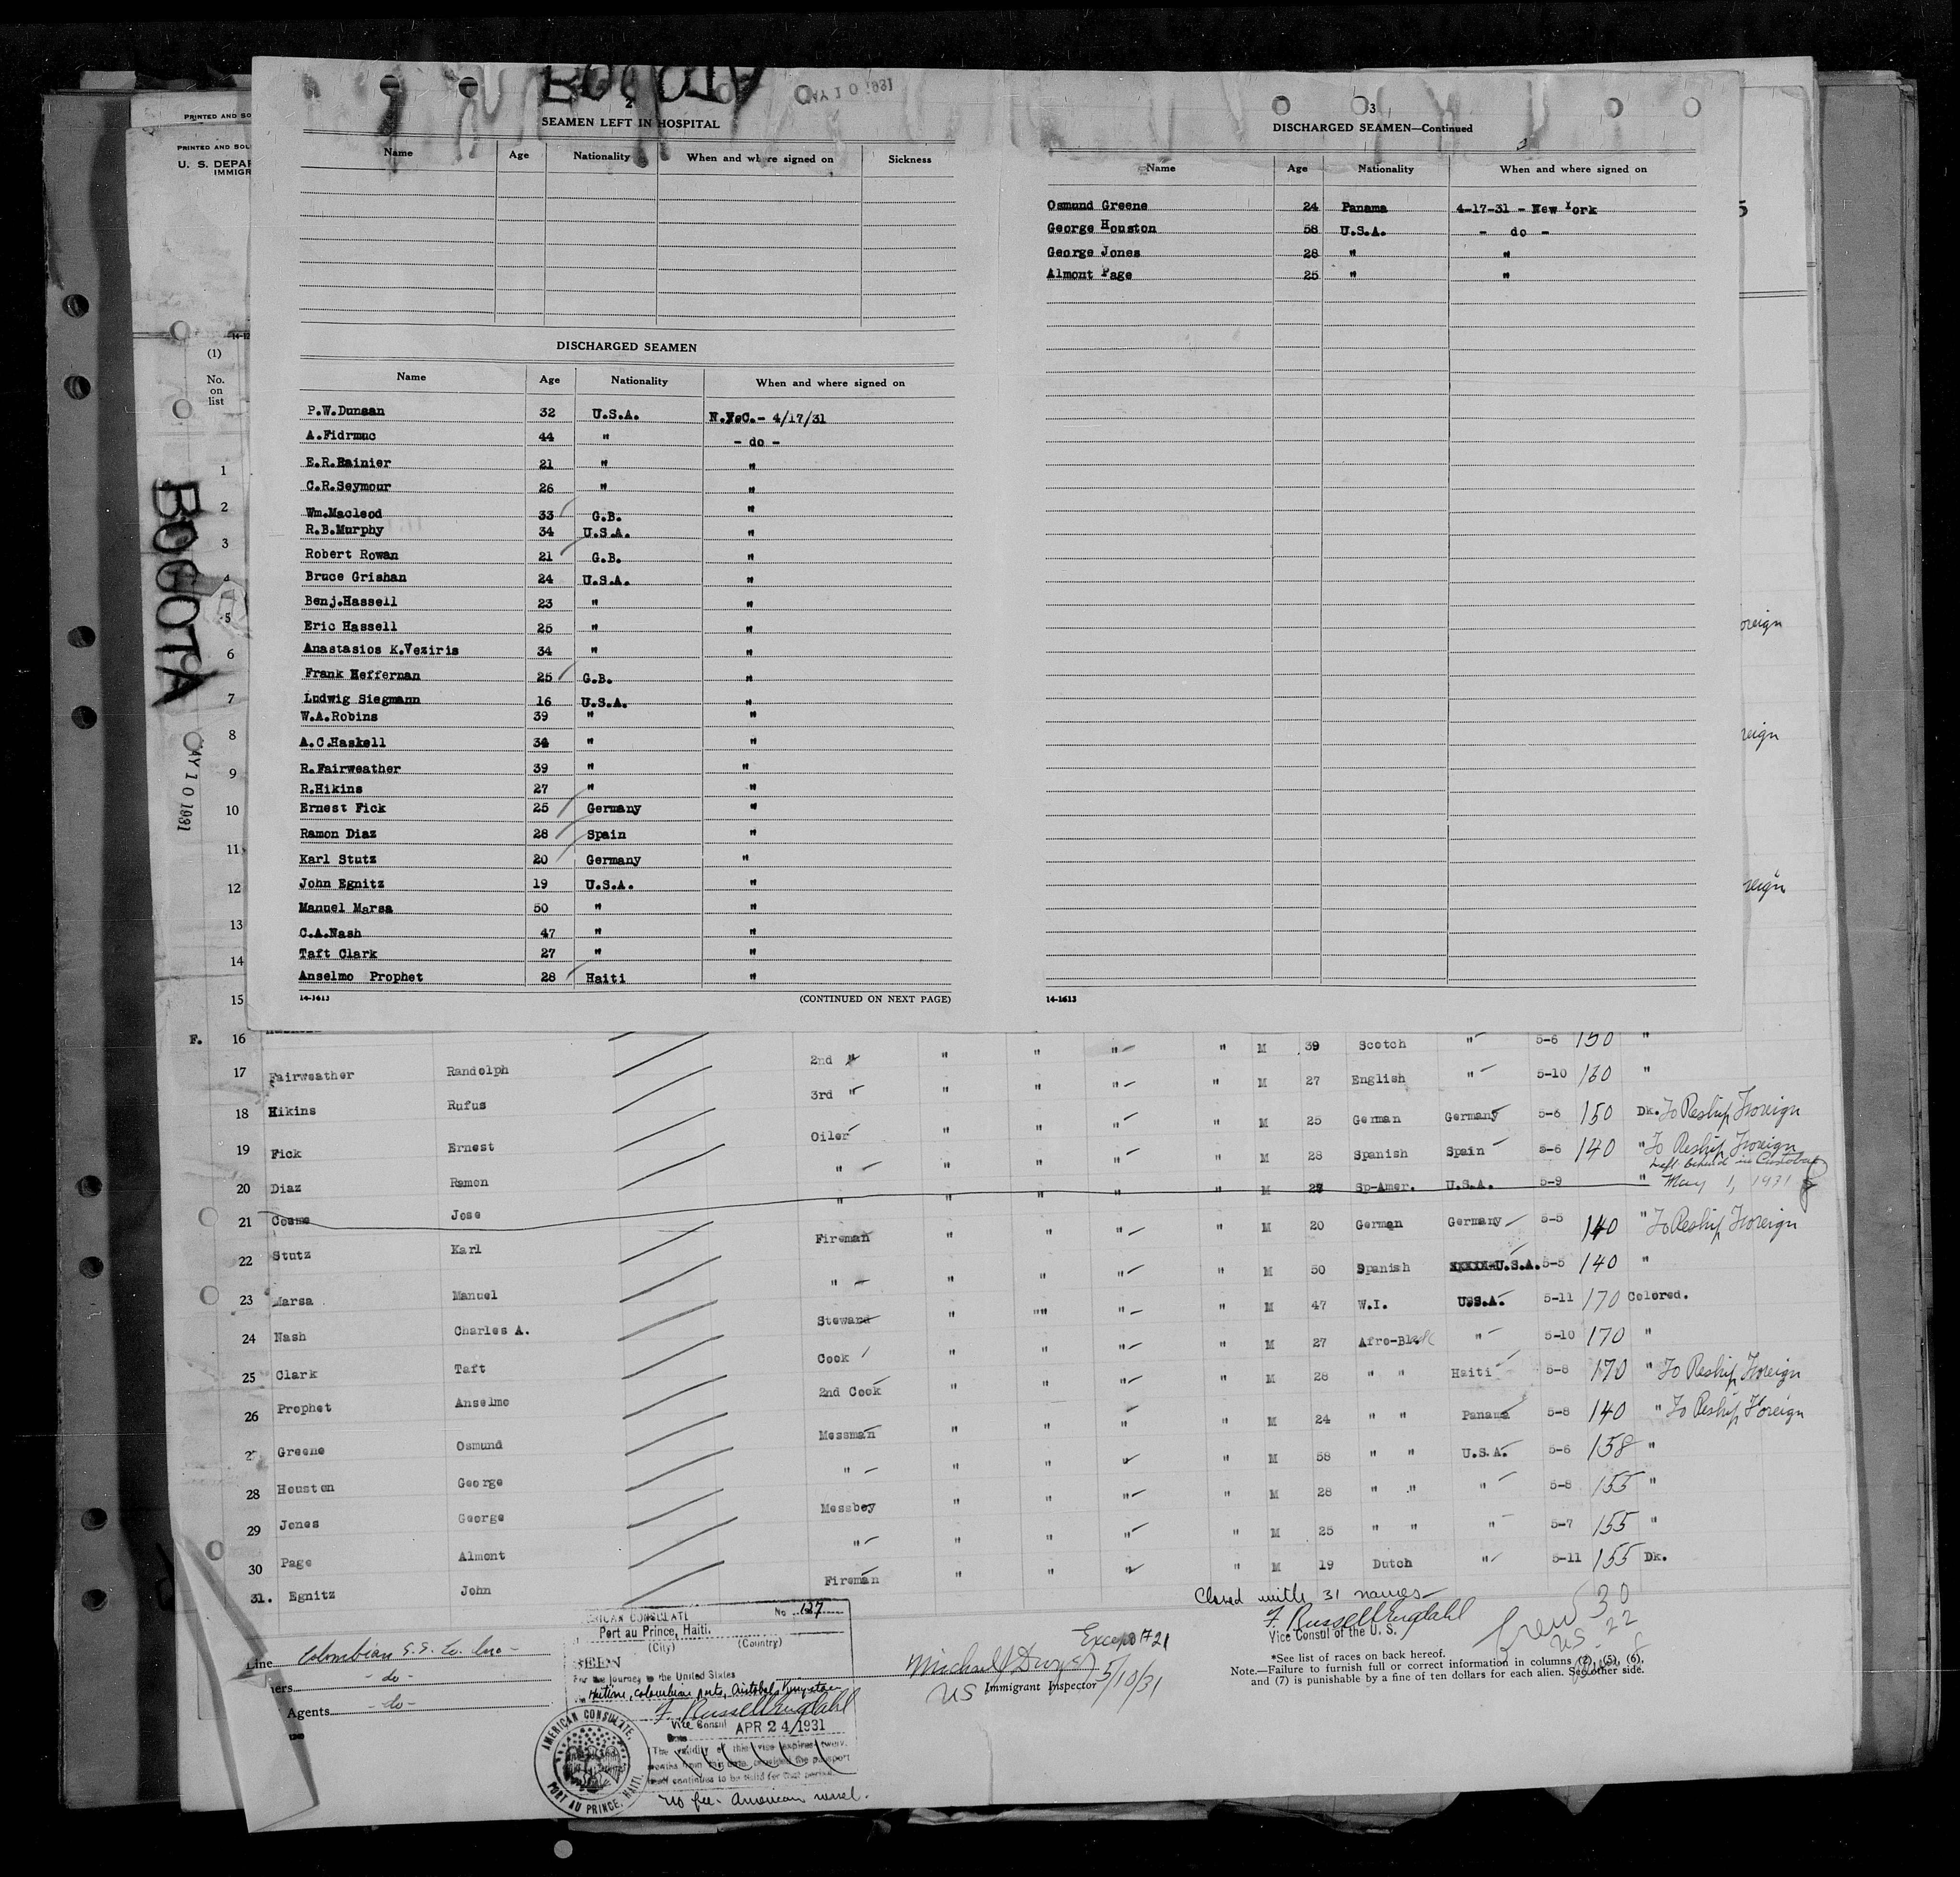 BOGOTA
MAY 10 1931
2
SEAMEN LEFT IN HOSPITAL
Name Age Nationality When and where signed on Sickness
DISCHARGED SEAMEN
Name Age Nationality When and where signed on
P.W.Dunaan 32 U.S.A. N.Y.C.- 4/17/31
A.Fidrmuc 44 " - do -
E.R.Rainier 21 " "
C.R.Seymour 26 " "
Wm.Macleod 33 G.B. "
R.B.Murphy 34 U.S.A. "
Robert Rowan 21 G.B. "
Bruce Grishan 24 U.S.A. "
Benj.Hassell 23 " "
Eric Hassell 25 " "
Anastasios K.Veziris 34 " "
Frank Heffernan 25 G.B. "
Ludwig Siegmann 16 U.S.A. "
W.A.Robins 39 " "
A.C.Haskell 34 " "
R.Fairweather 39 " "
R.Hikins 27 " "
Ernest Fick 25 Germany "
Ramon Diaz 28 Spain "
Karl Stutz 20 Germany "
John Egnitz 19 U.S.A. "
Manuel Marsa 50 " "
C.A.Nash 47 " "
Taft Clark 27 " "
Anselmo Prophet 28 Haiti "
14-1613 (CONTINUED ON NEXT PAGE)
3
DISCHARGED SEAMEN—Continued
Name Age Nationality When and where signed on
Osmund Greene 24 Panama 4-17-31 - New York
George Houston 58 U.S.A. - do -
George Jones 28 " "
Almont Page 25 " "
14-1613
PRINTED AND SO
PRINTED AND SOL
U. S. DEPAR
IMMIGR
14-12
(1)
No.
on
list
BOGOTA
MAY 10 1931
1
2
3
4
5
6
7
8
9
10
11
12
13
14
15
5
oreign
reign
reign
F. 16
2nd " " " " " M 39 Scotch " 5-6 150 "
17 Fairweather Randolph
3rd " " " " " M 27 English " 5-10 160 "
18 Hikins Rufus
Oiler " " " " M 25 German Germany 5-6 150 Dk. To Reship Foreign
19 Fick Ernest
" " " " " M 28 Spanish Spain 5-6 140 " To Reship Foreign
20 Diaz Ramon
Left behind in Cristobal
" " " " " M 27 Sp-Amer. U.S.A. 5-9 " May 1, 1931
21 Cosme Jose
Fireman " " " " M 20 German Germany 5-5 140 " To Reship Foreign
22 Stutz Karl
" " " " " M 50 Spanish U.S.A. 5-5 140 "
23 Marsa Manuel
Steward " "" " " M 47 W.I. U.S.A. 5-11 170 Colored.
24 Nash Charles A.
Cook " " " " M 27 Afro-Black " 5-10 170 "
25 Clark Taft
2nd Cook " " " " M 28 " " Haiti 5-8 170 " To Reship Foreign
26 Prophet Anselmo
Messman " " " " M 24 " " Panama 5-8 140 " To Reship Foreign
27 Greene Osmund
" " " " " M 58 " " U.S.A. 5-6 158 "
28 Houston George
Messboy " " " " M 28 " " " 5-8 155 "
29 Jones George
" " " " " M 25 " " " 5-7 155 "
30 Page Almont
Fireman " " " " M 19 Dutch " 5-11 155 Dk.
31. Egnitz John
Closed with 31 names
F. Russell Engdahl
Vice Consul of the U. S.
Crew 30
US 22
8
Line Colombian S.S. Co. Inc -
ners - do -
Agents - do -
1240
RICAN CONSULATE No 127
Port au Prince, Haiti.
(City) (Country)
SEEN
For the journey to the United States
Haitian, Colombian ports, Cristobal, Kingston
F. Russell Engdahl
Vice Consul APR 24 1931
Date
(The validity of this vise expires twelve
months from this date, provided the passport
itself continues to be valid for that period.
No fee. American vessel.
AMERICAN CONSULATE,
PORT AU PRINCE, HAITI.
Except #21
Michael J Dwyer 5/10/31
US Immigrant Inspector
*See list of races on back hereof.
Note.—Failure to furnish full or correct information in columns (2), (5), (6),
and (7) is punishable by a fine of ten dollars for each alien. See other side.